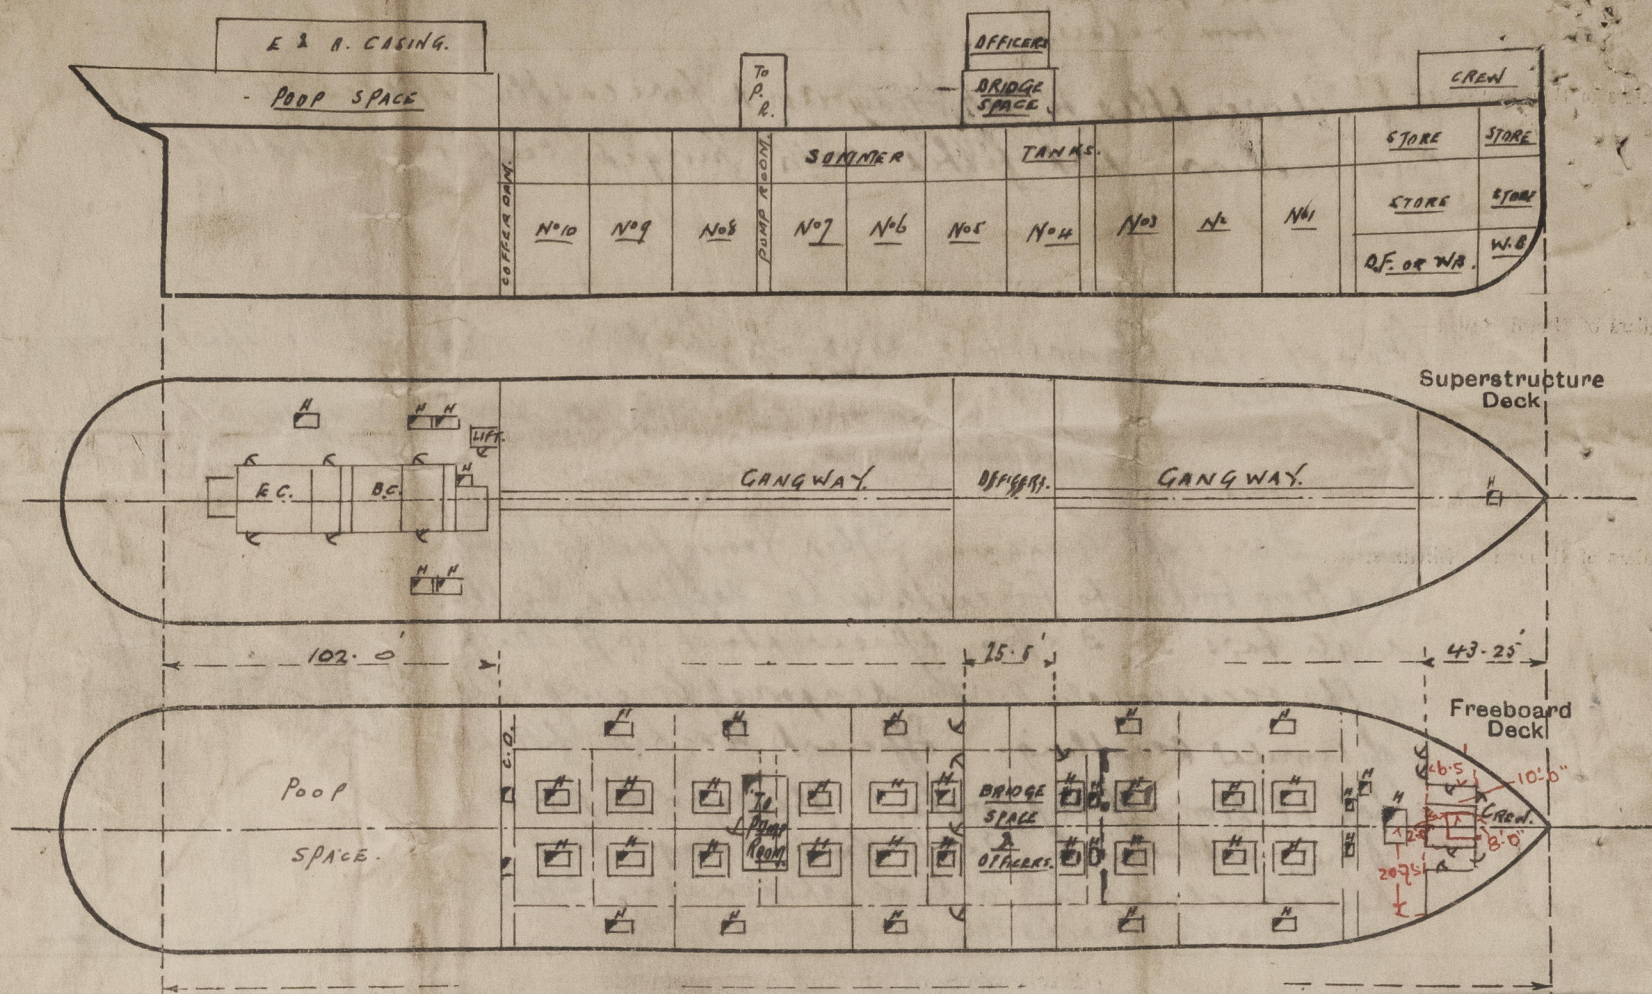 E & B. CASING.
POOP SPACE
TO
P.
R.
OFFICERS
BRIDGE
SPACE
CREW
COFFER DAM.
PUMP ROOM.
SUMMER TANKS.
No10
No9
No8
No7
No6
No5
No4
No3
No1
STORE
STORE
STORE
STORE
O.F. OR WB.
W.B
Superstructure
Deck
H
H H
LIFT.
H
E.C.
B.C.
GANGWAY.
OFFICERS.
GANGWAY.
H
H H
102.0'
25.5'
43.25'
Freeboard
Deck
C.D.
H H H H H
POOP
SPACE.
H H H H H H H H H H H H
TO
PUMP
ROOM.
BRIDGE
SPACE
&
OFFICERS.
H H H H H H H H
6.5
10'.0"
CREW.
8'.0"
20.75
H H H H H